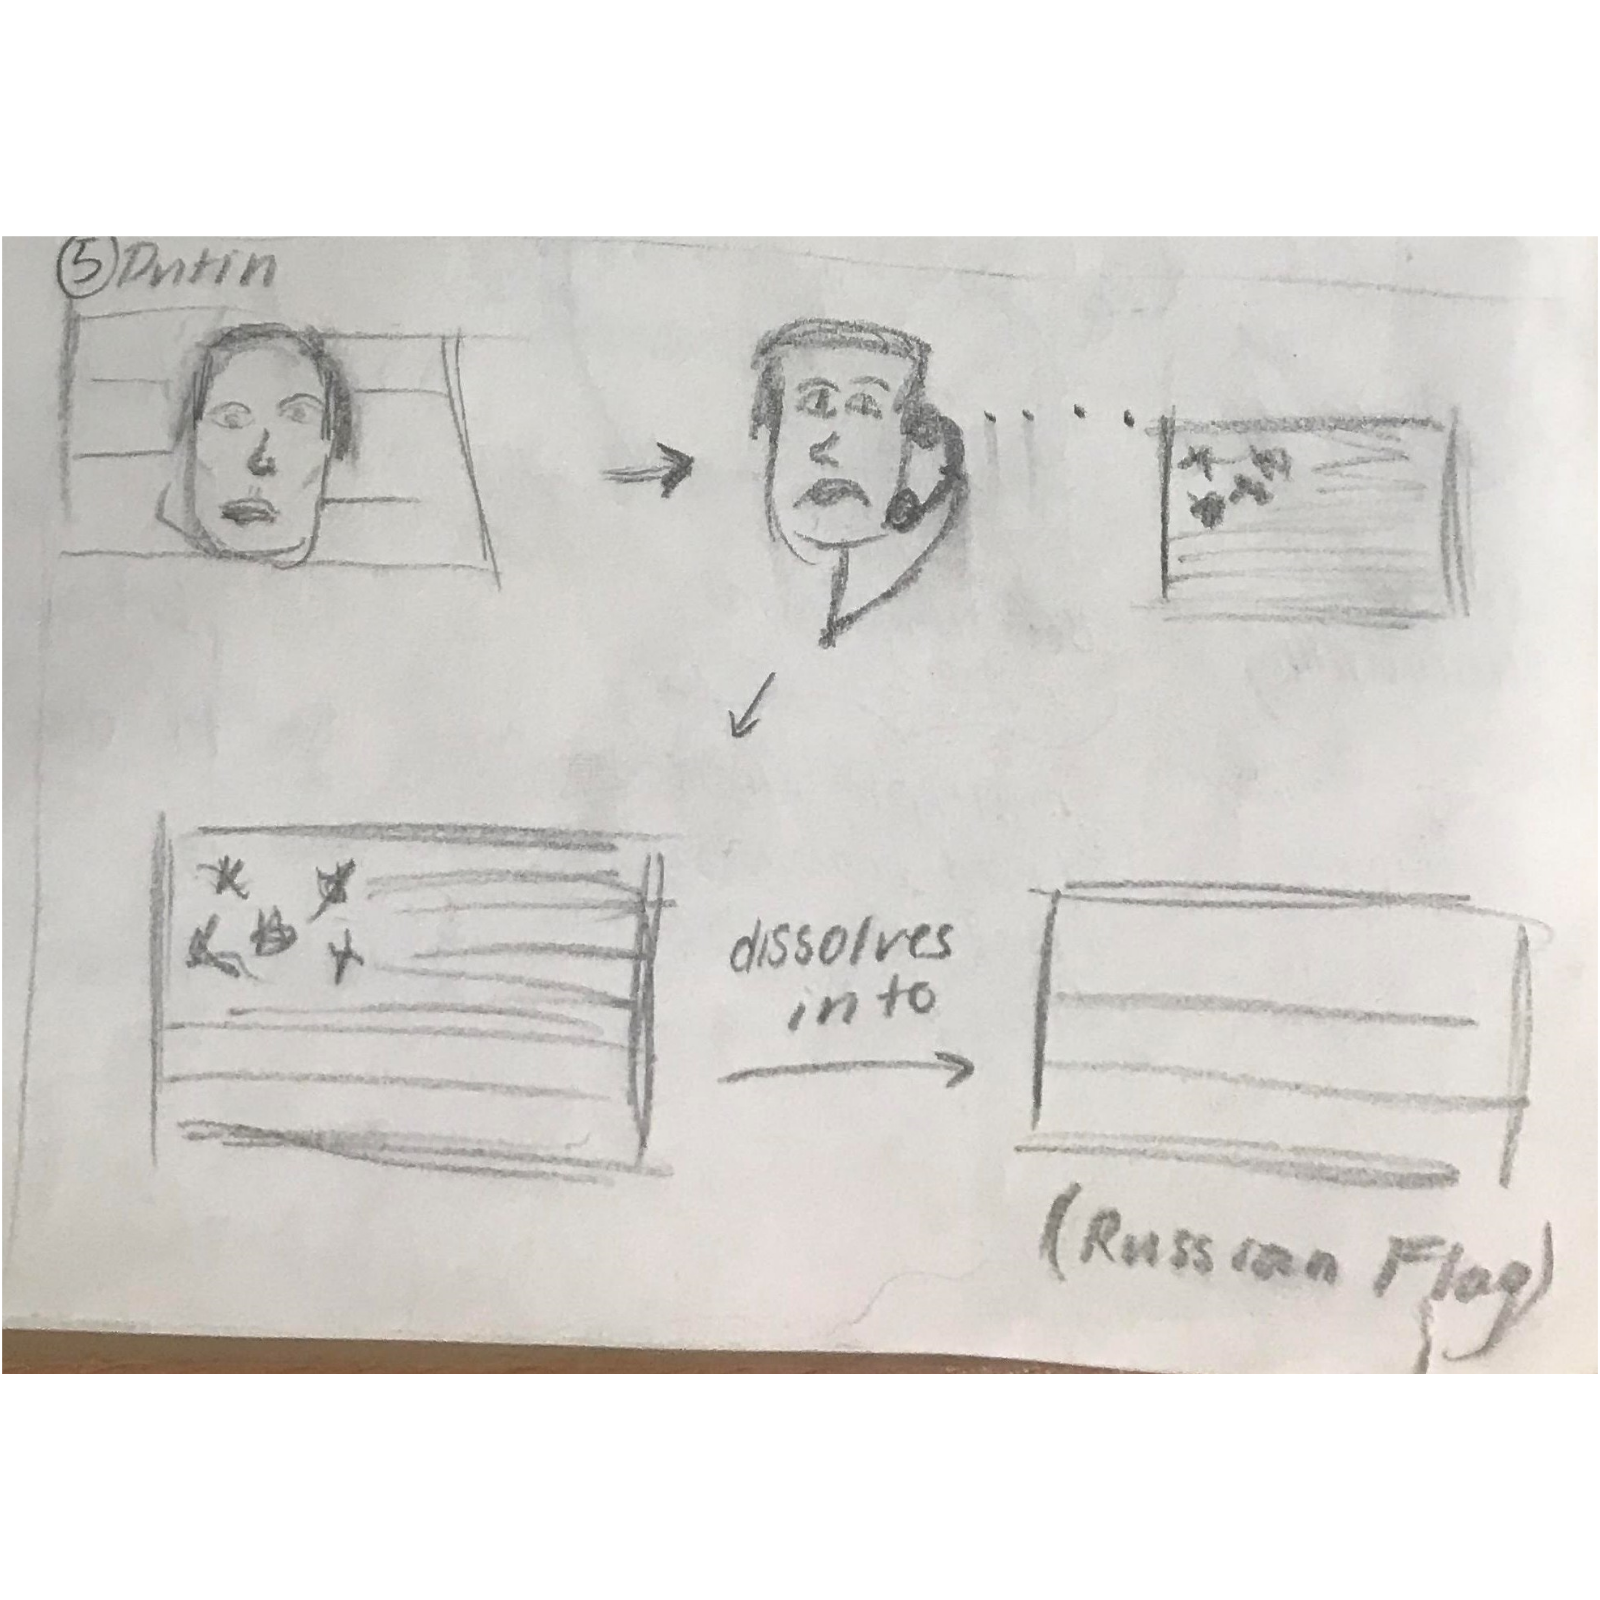 ⑤ Putin
dissolves
into
(Russian Flag)